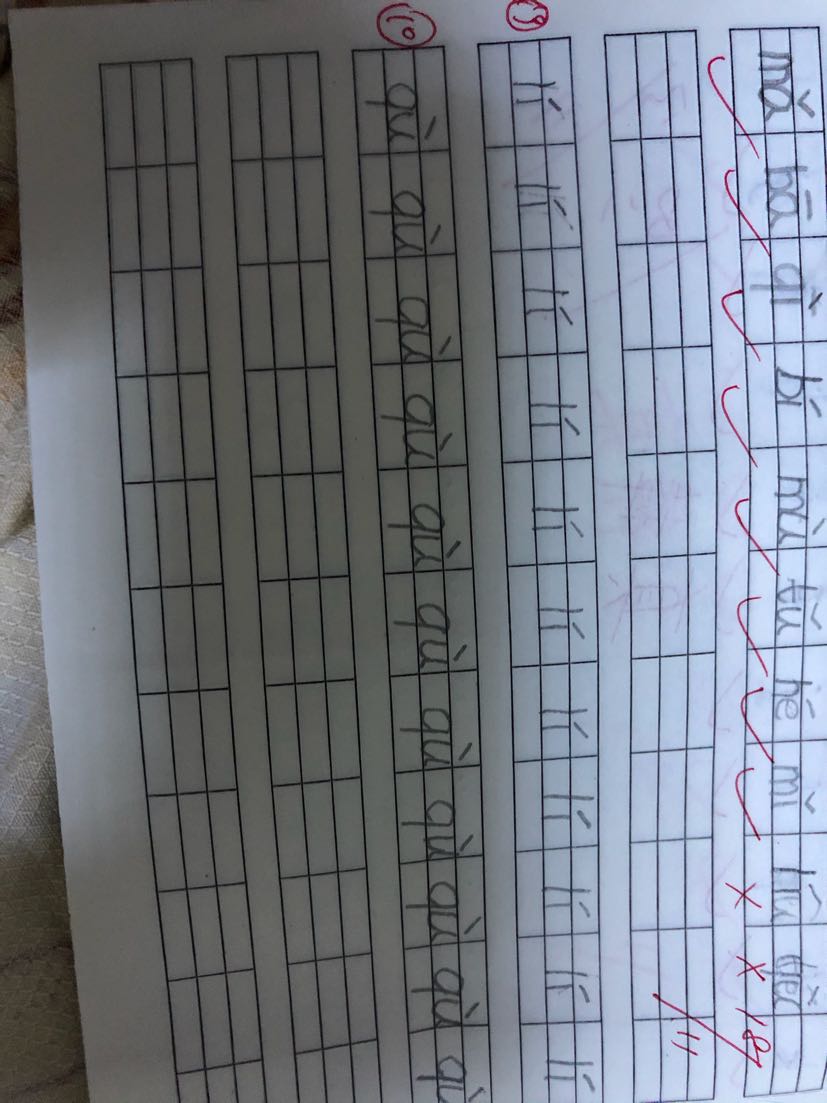 mǎ bā qì bí mù tǔ hé mǐ
⑨
lí lí lí lí lí lí lí lí lí lí lí
⑩
qù qù qù qù qù qù qù qù qù qù qù